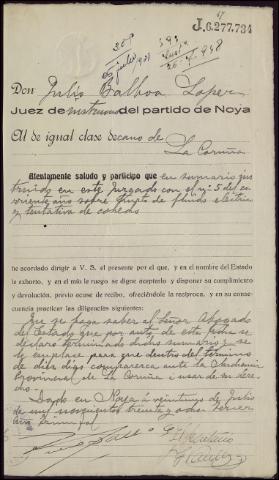 J.6.277.734
Don Julio Balboa Lopez
Juez de instrucción del partido de Noya
Al de igual clase decano de
La Coruña
Atentamente saludo y participo que en sumario ins
truido en este Juzgado con el nº 5 del co
rriente año sobre hurto de fluido eléctrico
y tentativa de
he acordado dirigir a V. S. el presente por el que, y en el nombre del Estado
le exhorto, y en el mío le ruego se digne aceptarlo y disponer su cumplimiento
y devolución, previo acuse de recibo, ofreciéndole la recíproca, y en su conse-
cuencia practicar las diligencias siguientes:
Que se haga saber al Señor Abogado
del Estado que por auto de esta fecha se
declaró terminado dicho sumario y se
le emplaza para que dentro del término
de diez días comparezca ante la Audiencia
Provincial de La Coruña a usar de su dere
cho.
Dado en Noya a veintiuno de Julio
de mil novecientos treinta y ocho. Tercer
año triunfal.
El Secretario